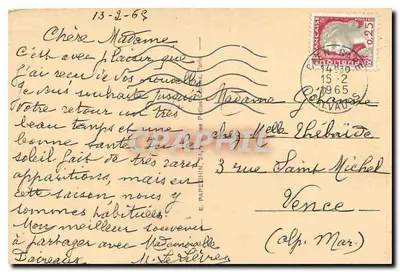 13-2-65
Chère Madame
C'est avec plaisir que
j'ai recu de vos nouvelles
Je vous souhaite jusqu'à
votre retour un très
beau temps et une
bonne santé. Ici le
soleil fait de très rares
apparitions, mais en
cette saison, nous y
sommes habitués.
Mon meilleur souvenir
à partager avec Mademoiselle
FRANÇAISE
0,25
14H30
15-2
1965
Madame
chez Melle Thébaïde
3 rue Saint Michel
Vence
(Alp. Mar.)